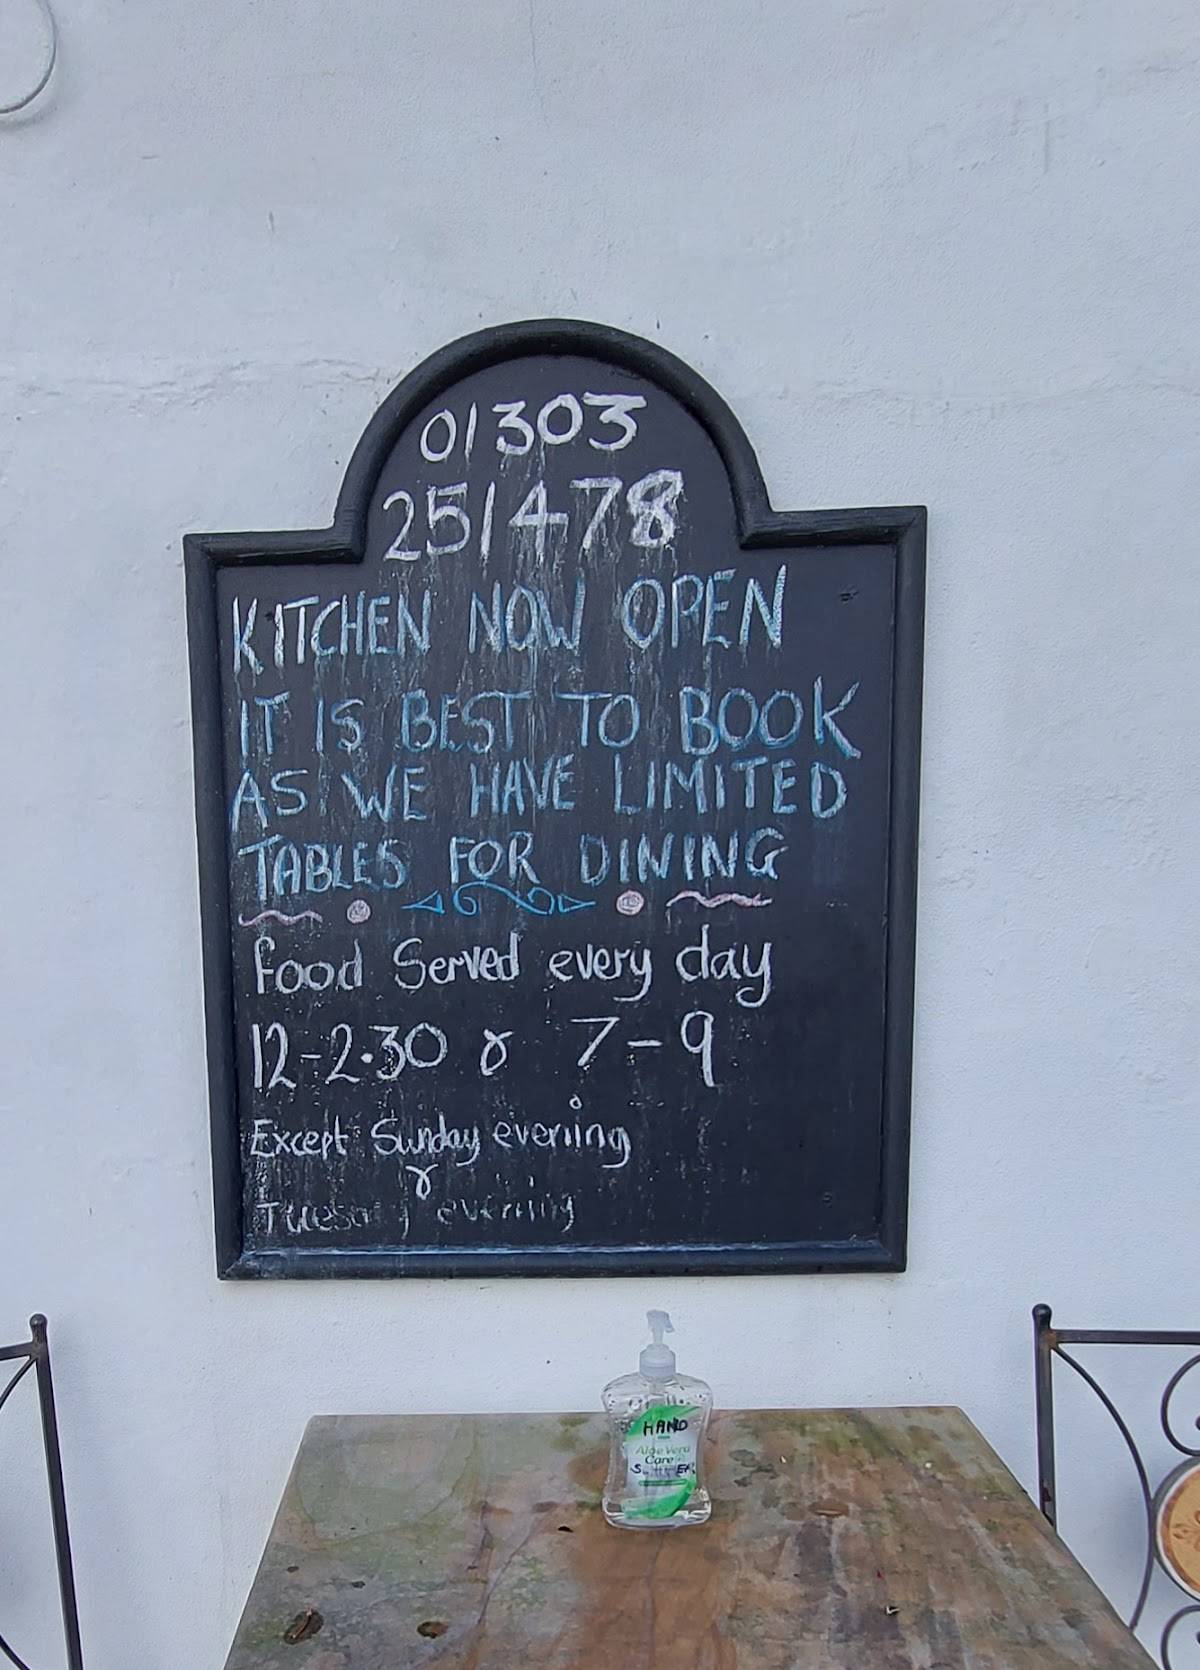 01303
251478
KITCHEN NOW OPEN
IT IS BEST TO BOOK
AS WE HAVE LIMITED
TABLES FOR DINING
Food Served every day
12-2.30 & 7-9
Except Sunday evening
&
evening
HAND
Aloe Vera
Care